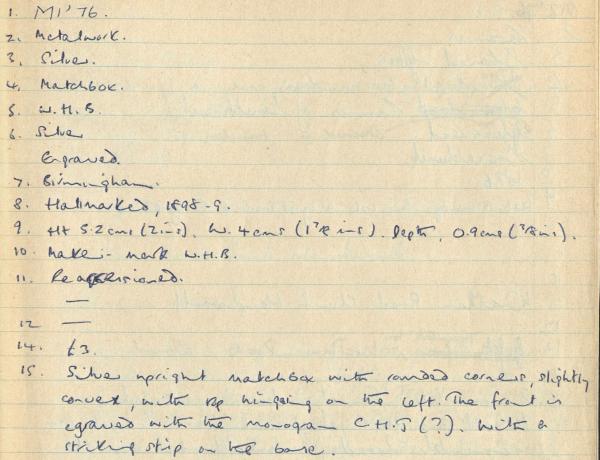 1. MI'76.
2. Metalwork.
3. Silver.
4. Matchbox.
5. W.H.B.
6. Silver
Engraved.
7. Birmingham.
8. Hallmarked, 1898-9.
9. Ht 5.2cms (2ins). W. 4cms Depth, 0.9cms
10. Maker's mark W.H.B.
11. Reaccessioned.
—
12 —
14. £3.
15. Silver upright matchbox with rounded corners, slightly
convex, with top hinging on the left. The front is
egraved with the monogram C H J (?). With a
striking strip on the base.